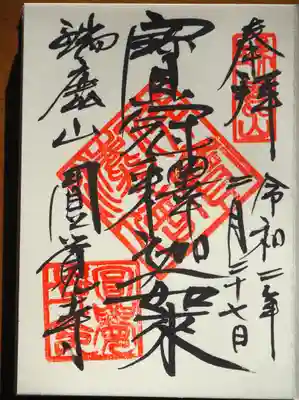 奉拝
令和二年
二月二十七日
寶冠釋迦如来
瑞鹿山 圓覚寺